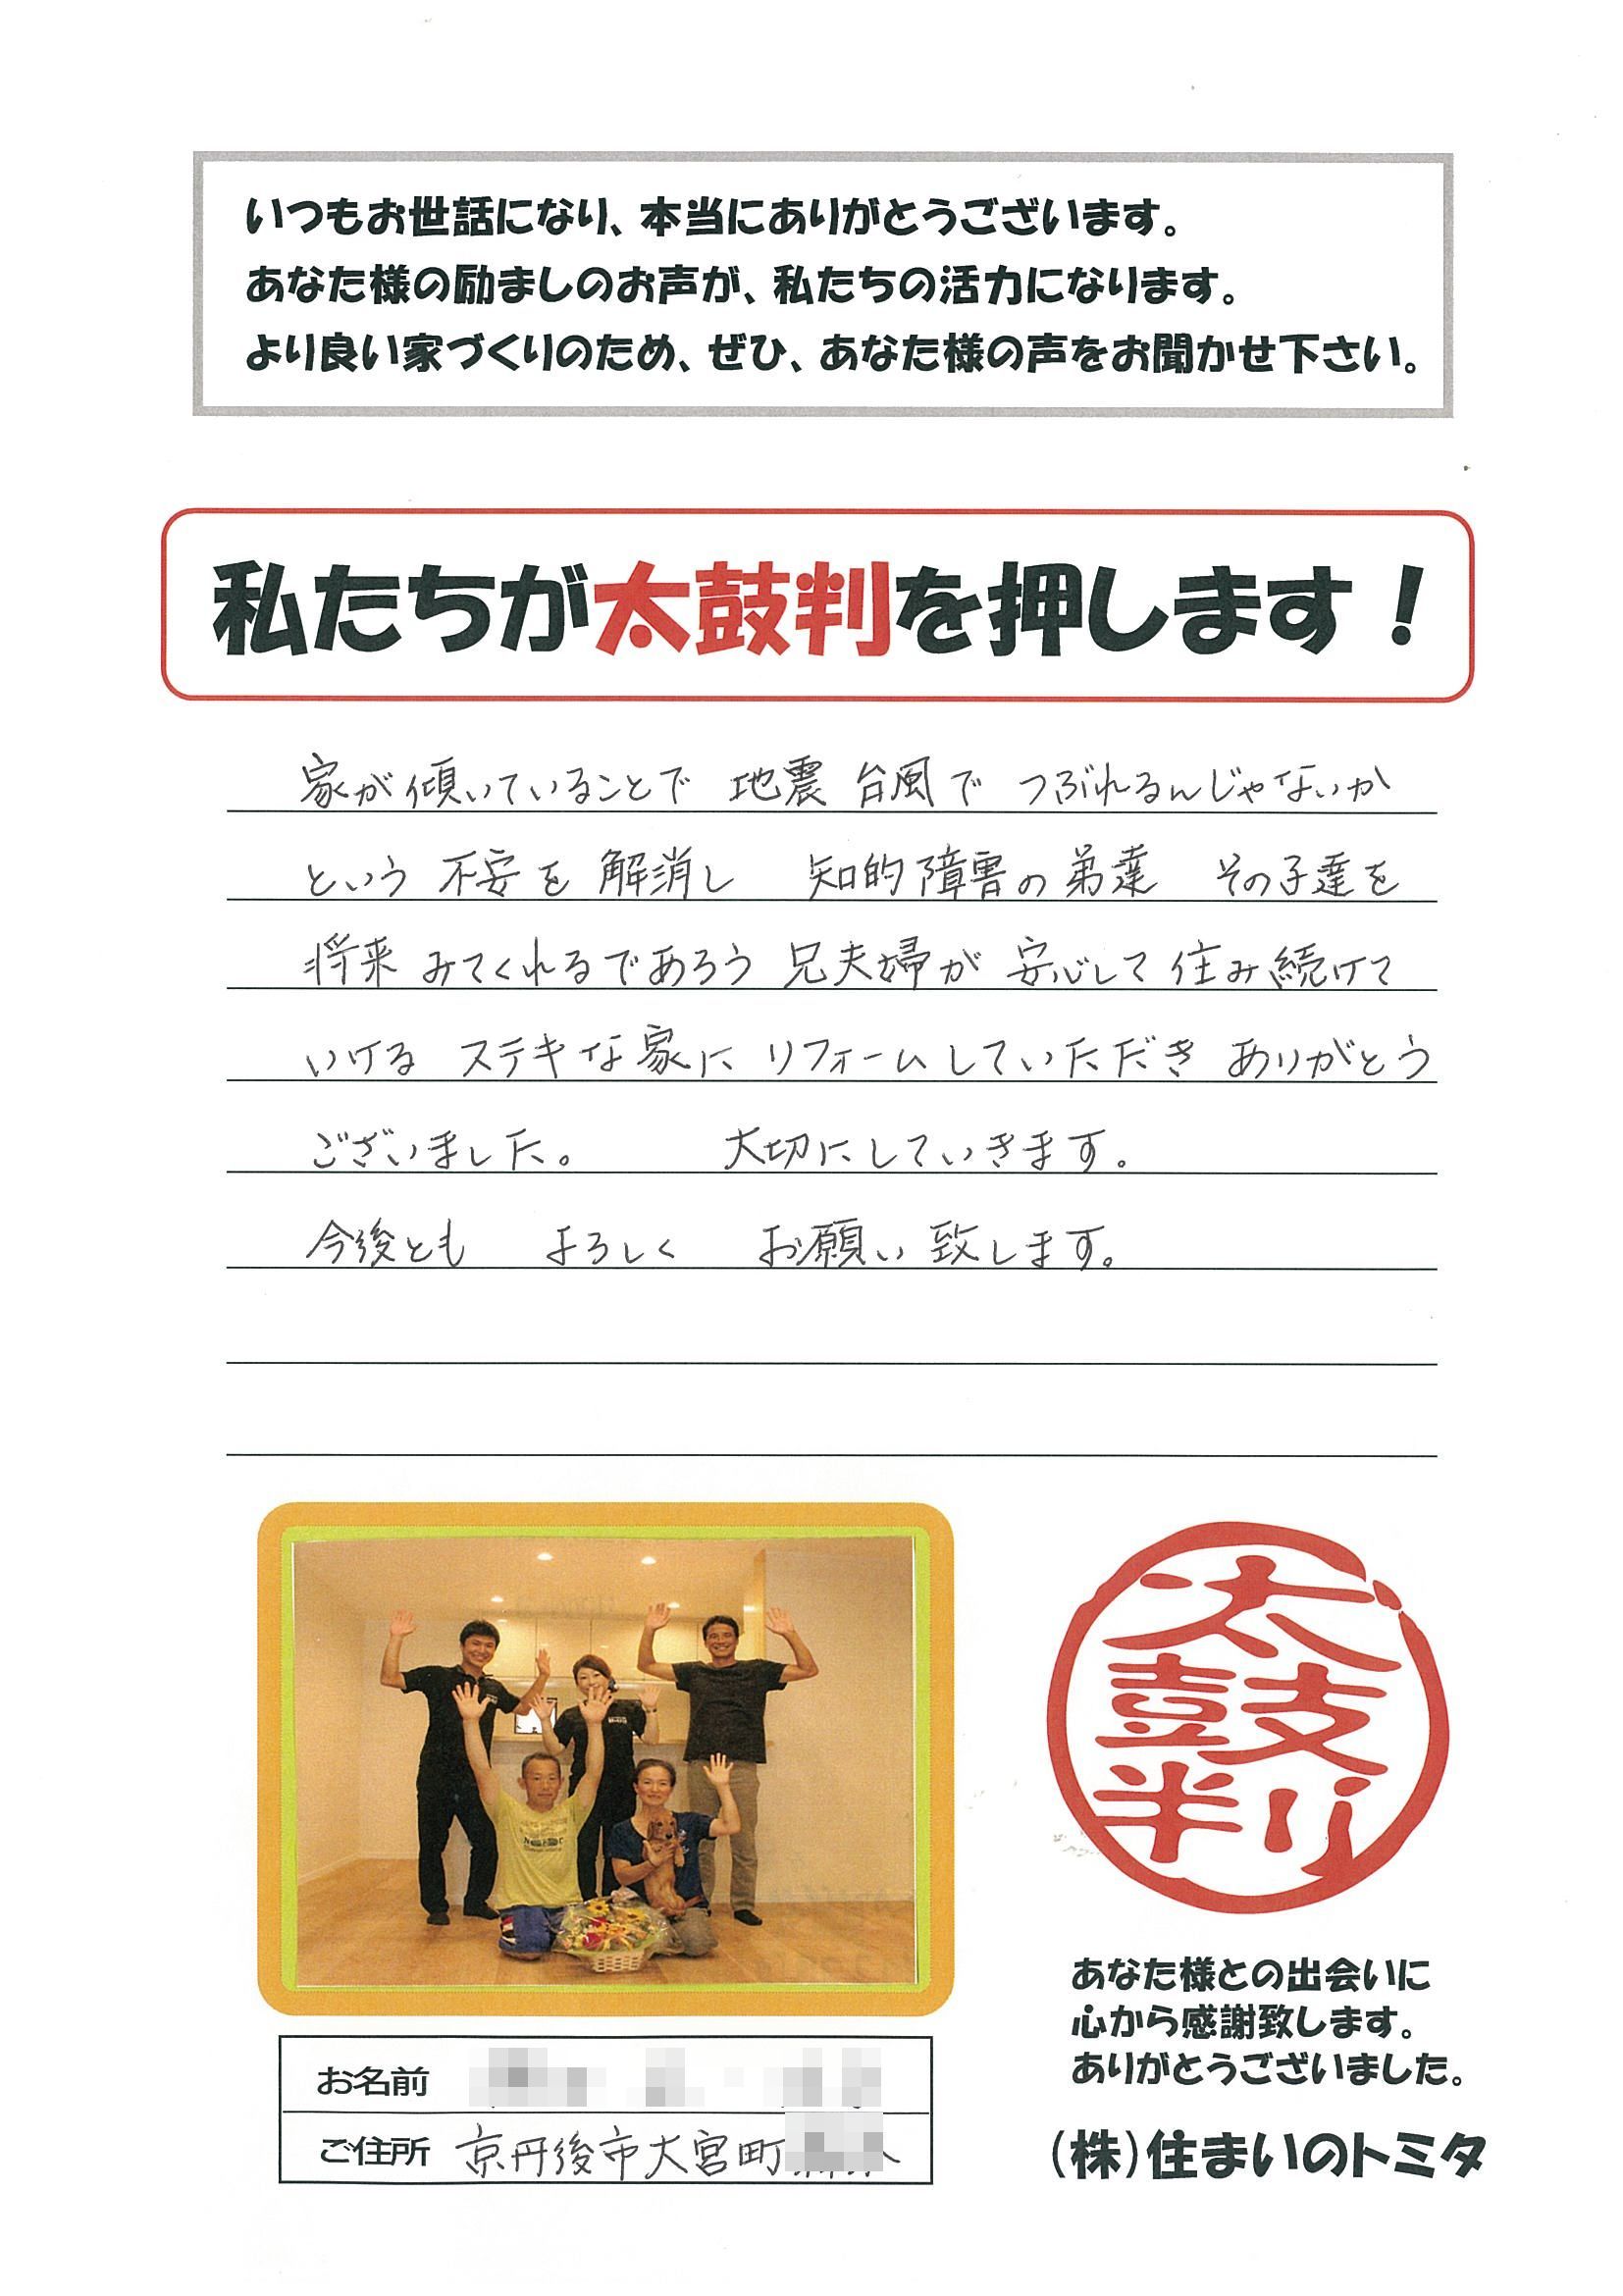 いつもお世話になり、本当にありがとうございます。
あなた様の励ましのお声が、私たちの活力になります。
より良い家づくりのため、ぜひ、あなた様の声をお聞かせ下さい。
私たちが太鼓判を押します！
家が傾いていることで 地震 台風で つぶれるんじゃないか
という 不安を 解消し 知的障害の弟達 その子達を
将来 みてくれるであろう 兄夫婦が 安心して 住み続けて
いける ステキな家に リフォームしていただき ありがとう
ございました。 大切にしていきます。
今後とも よろしく お願い致します。
太鼓判
あなた様との出会いに
心から感謝致します。
ありがとうございました。
お名前
ご住所 京丹後市大宮町
(株)住まいのトミタ